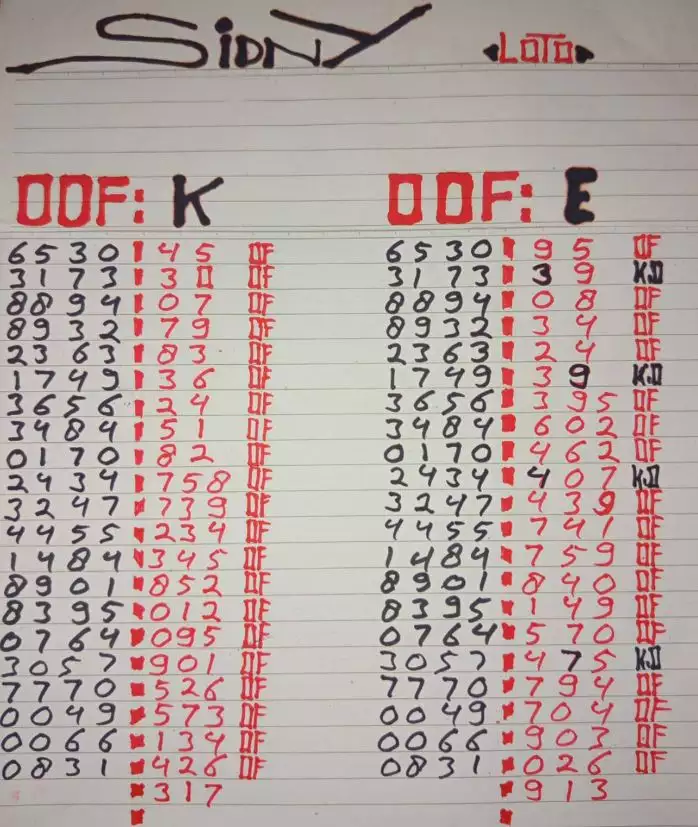 SiDNY ◄LOTO►
OOF: K OOF: E
6530 45 OF 6530 95 OF
3173 30 OF 3173 39 K.O
8894 07 OF 8894 08 OF
8932 79 OF 8932 34 OF
2363 83 OF 2363 24 OF
1749 36 OF 1749 39 K.O
3656 24 OF 3656 395 OF
3484 51 OF 3484 602 OF
0170 82 OF 0170 462 OF
2434 758 OF 2434 407 K.O
3247 739 OF 3247 439 OF
4455 234 OF 4455 741 OF
1484 345 OF 1484 759 OF
8901 852 OF 8901 840 OF
8395 012 OF 8395 149 OF
0764 095 OF 0764 570 OF
3057 901 OF 3057 475 K.O
7770 526 OF 7770 794 OF
0049 573 OF 0049 704 OF
0066 134 OF 0066 903 OF
0831 426 OF 0831 026 OF
317 913